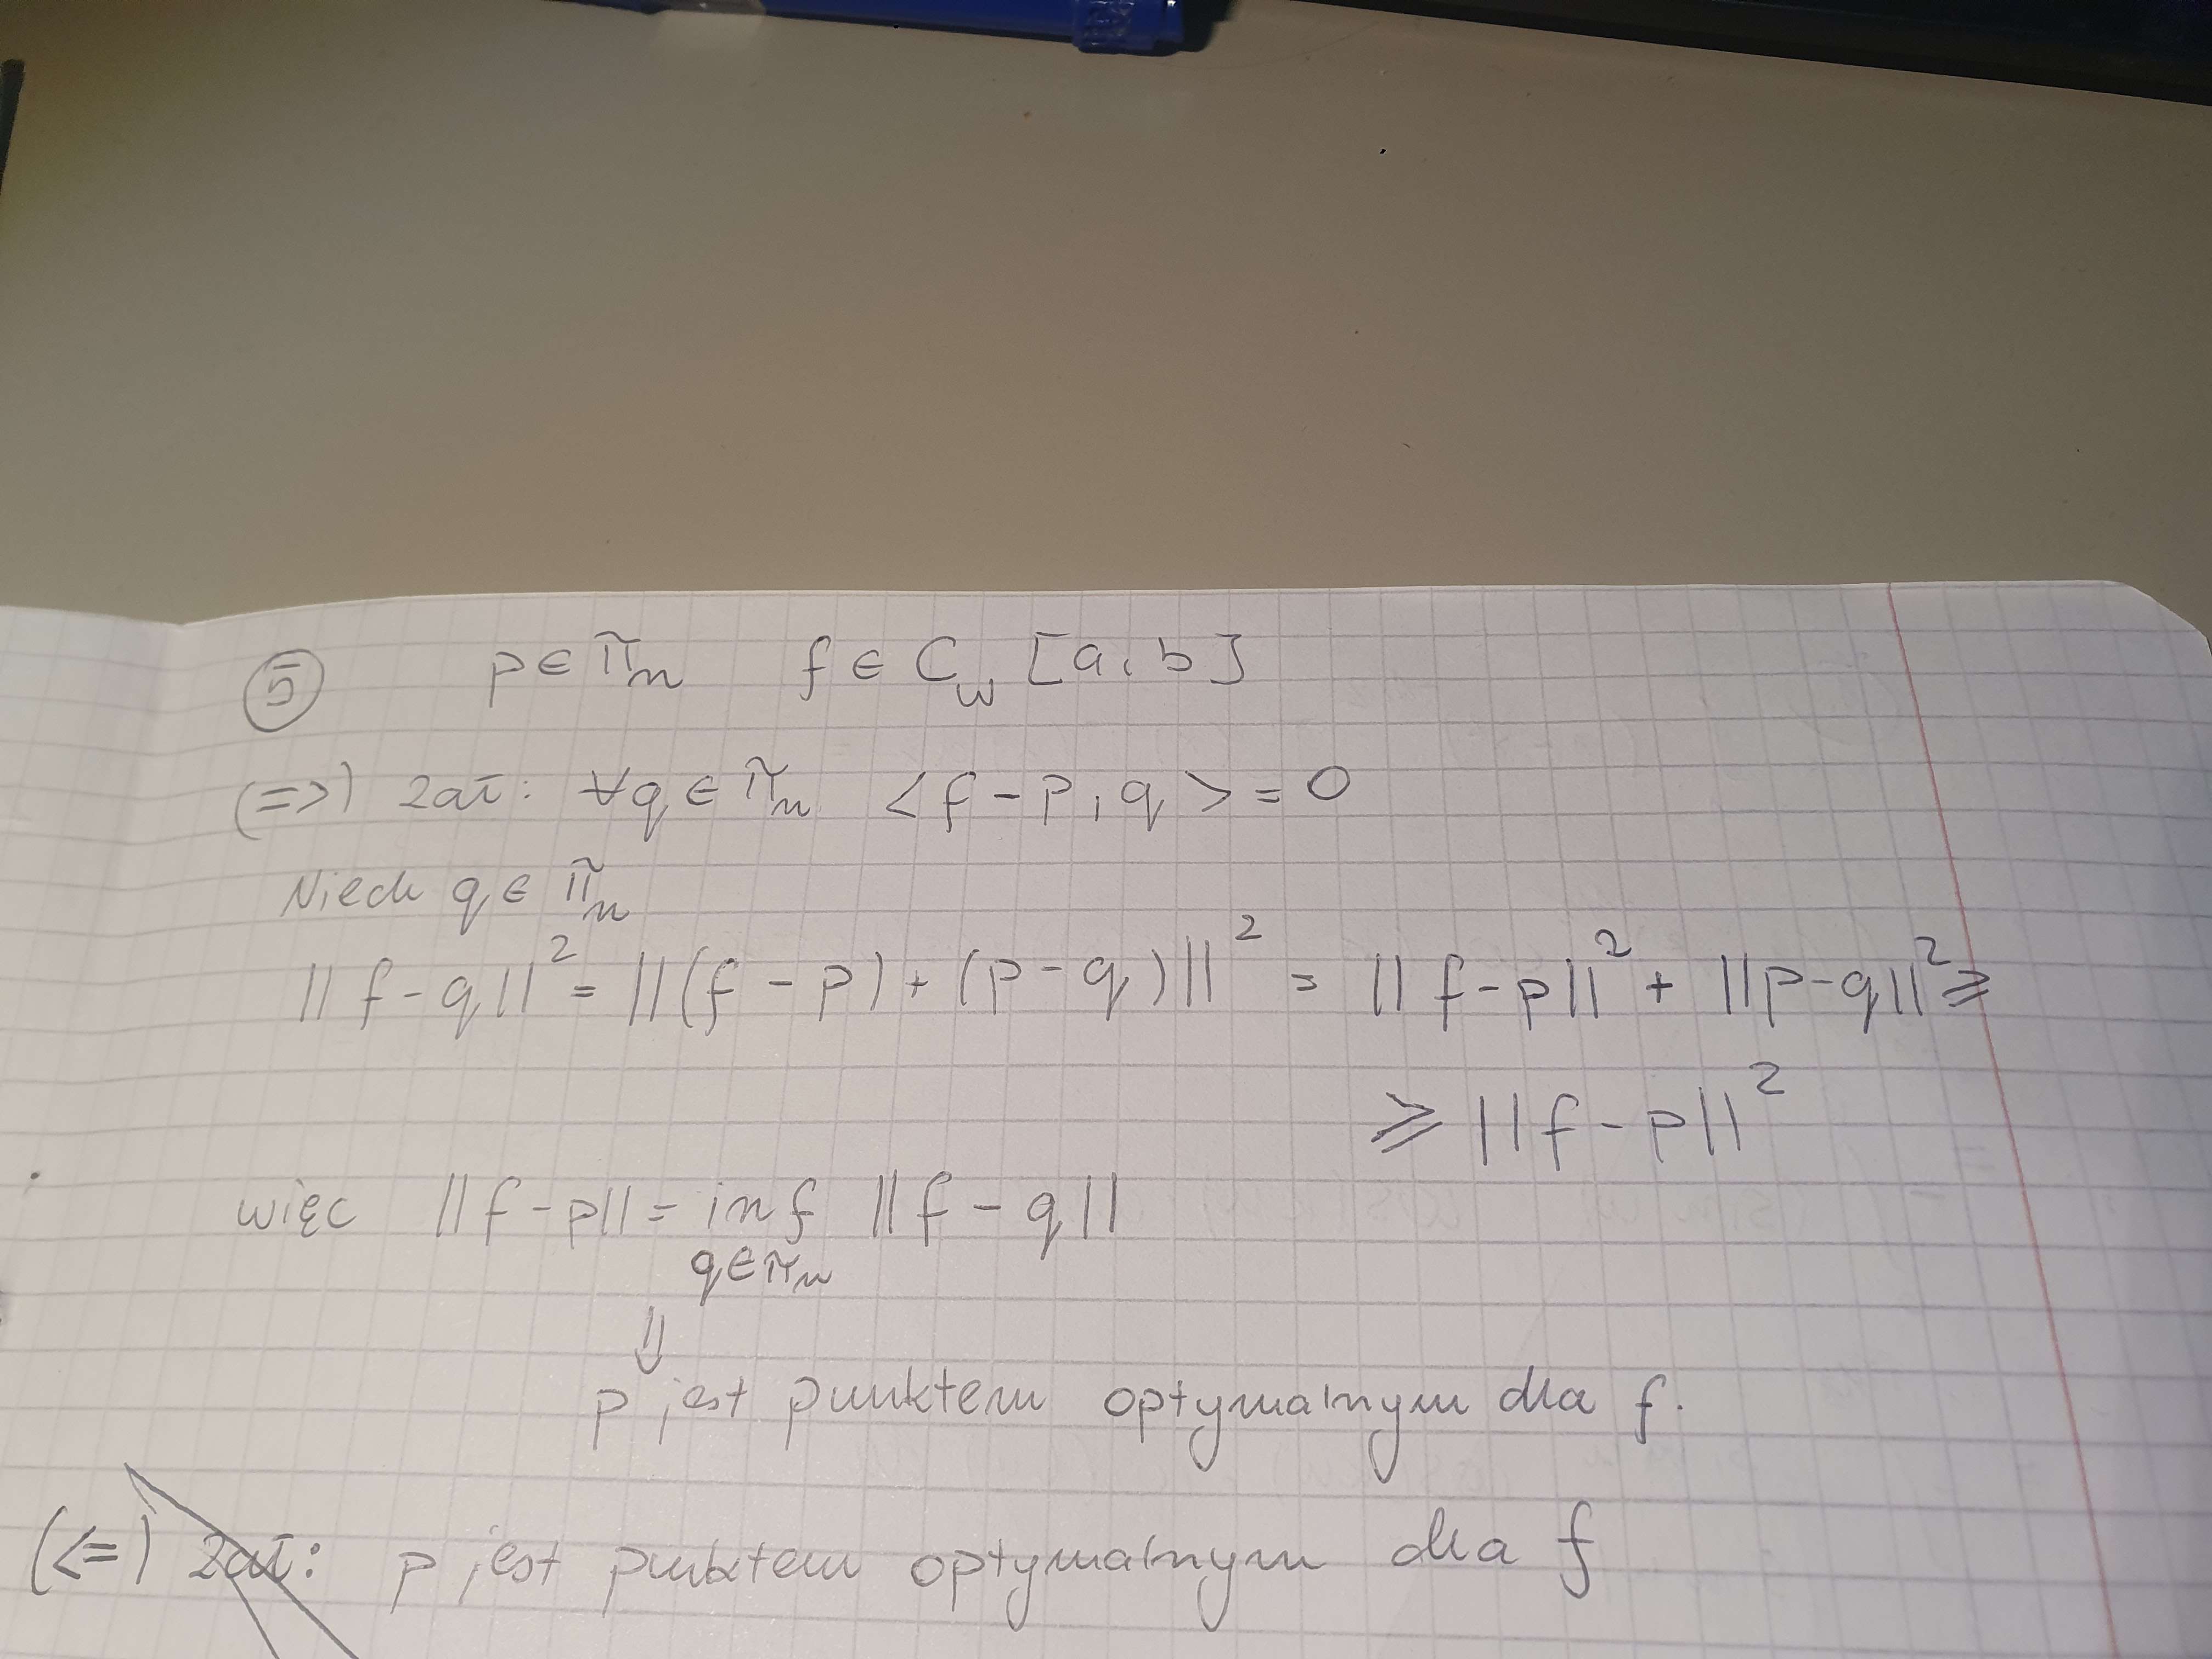 ⑤ p ∈ Πₙ f ∈ C_w [a, b]
(=>) zał: ∀q ∈ Πₙ <f - p, q> = 0
Niech q ∈ Πₙ
||f - q||² = ||(f - p) + (p - q)||² = ||f - p||² + ||p - q||² ⩾
⩾ ||f - p||²
więc ||f - p|| = inf ||f - q||
q ∈ Πₙ
⇓
p jest punktem optymalnym dla f.
(<=) zał: p jest punktem optymalnym dla f